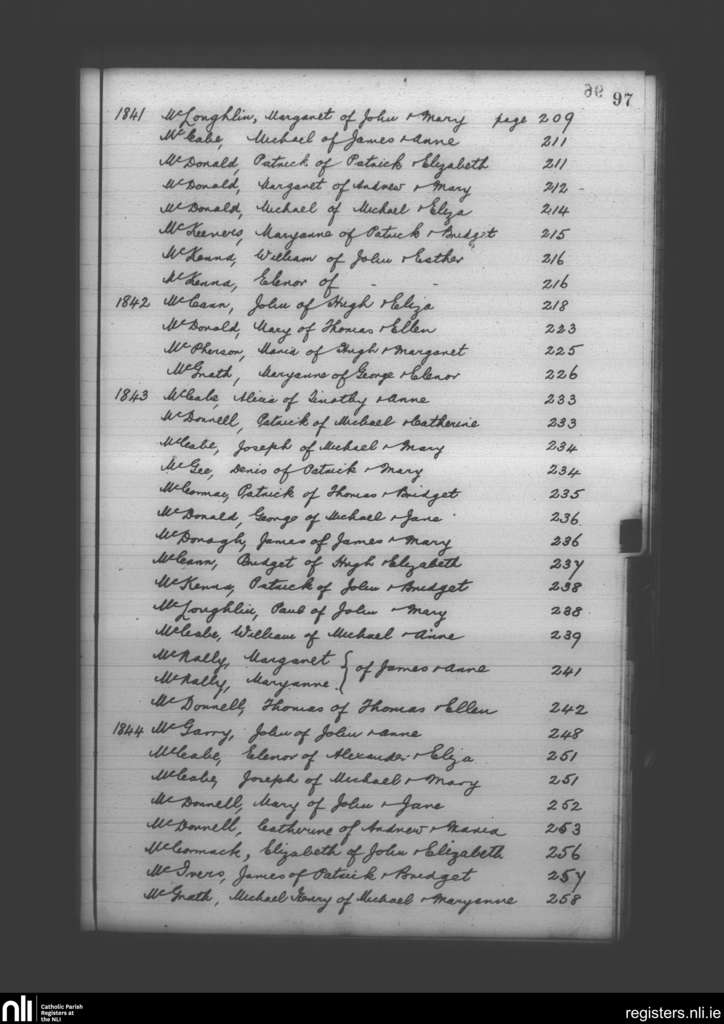 96 97
1841 McLoughlin, Margaret of John & Mary page 209
McCabe, Michael of James & Anne 211
McDonald, Patrick of Patrick & Elizabeth 211
McDonald, Margaret of Andrew & Mary 212
McDonald, Michael of Michael & Eliza 214
McKeevers, Maryanne of Patrick & Bridget 215
McKenna, William of John & Esther 216
McKenna, Elenor of - - 216
1842 McCann, John of Hugh & Eliza 218
McDonald, Mary of Thomas & Ellen 223
McPherson, Maria of Hugh & Margaret 225
McGrath, Maryanne of George & Elenor 226
1843 McCabe, Alicia of Timothy & Anne 233
McDonnell, Patrick of Michael & Catherine 233
McCabe, Joseph of Michael & Mary 234
McGee, Denis of Patrick & Mary 234
McCormac, Patrick of Thomas & Bridget 235
McDonald, George of Michael & Jane 236
McDonagh, James of James & Mary 236
McCann, Bridget of Hugh & Elizabeth 237
McKenna, Patrick of John & Bridget 238
McLoughlin, Paul of John & Mary 238
McCabe, William of Michael & Anne 239
McNally, Margaret } of James & Anne 241
McNally, Maryanne
McDonnell, Thomas of Thomas & Ellen 242
1844 McGarry, John of John & Anne 248
McCabe, Elenor of Alexander & Eliza 251
McCabe, Joseph of Michael & Mary 251
McDonnell, Mary of John & Jane 252
McDonnell, Catherine of Andrew & Maria 253
McCormack, Elizabeth of John & Elizabeth 256
McIvers, James of Patrick & Bridget 257
McGrath, Michael Henry of Michael & Maryanne 258
nli Catholic Parish
Registers at
the NLI
registers.nli.ie